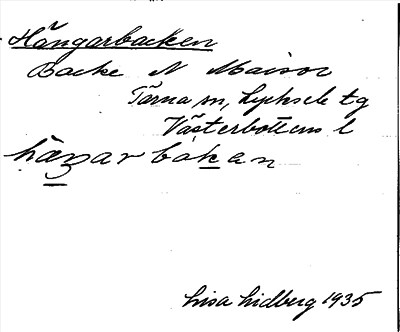 Hängarbacken
Backe N Maisor
Tärna sn, Lycksele tg
Västerbottens l
häŋarbakan
Lisa Lidberg 1935